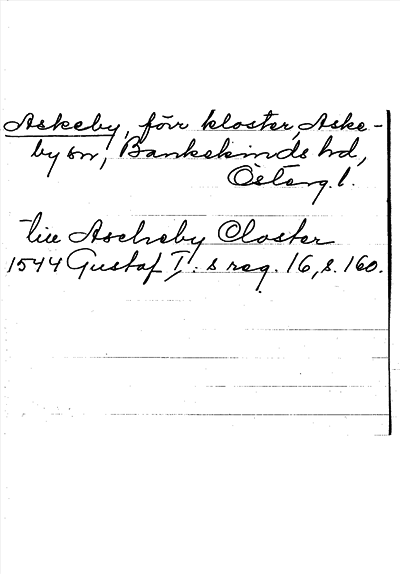 Askeby, förr kloster, Aske-
by sn, Bankekinds hd,
Österg. l.
till Ascheby Closter
1544 Gustaf I: s reg. 16, s. 160.